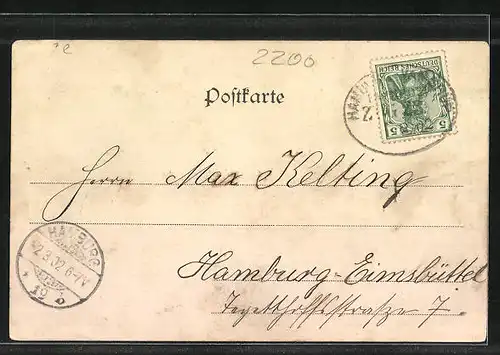 2200
Postkarte
DEUTSCHES REICH
5 5
HAMBURG
Herrn Max Kelting
HAMBURG
2.8.02.6-7V
19
Hamburg-Eimsbüttel
Tegetthoffstrasze 7.